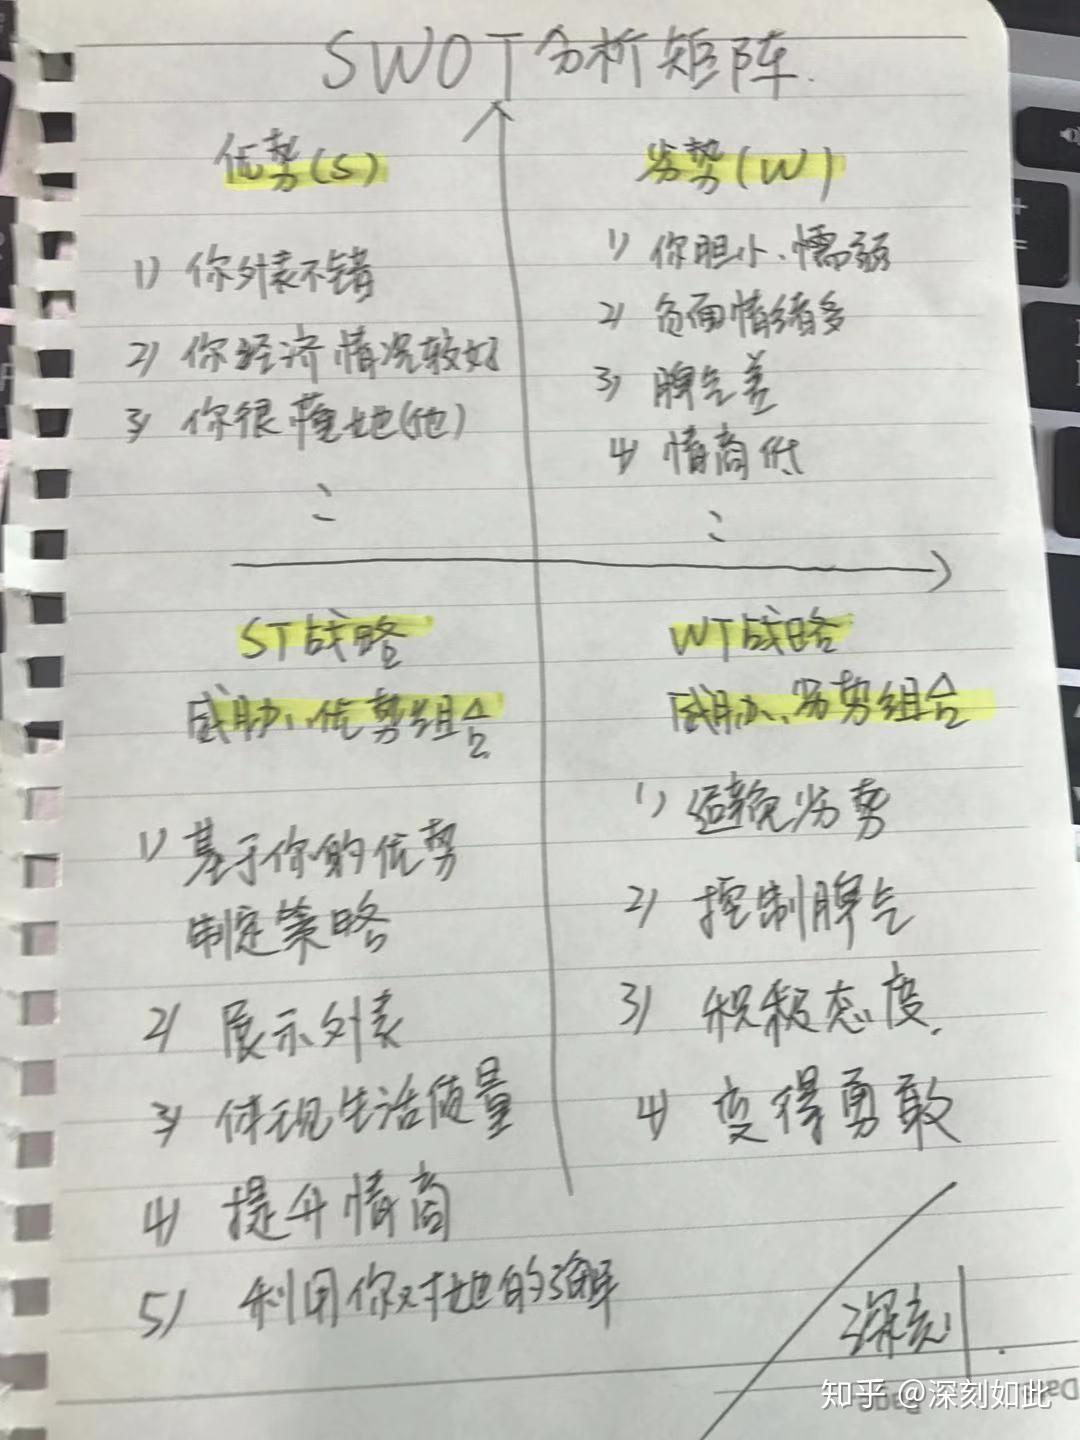 SWOT分析矩阵.
优势(S)
1) 你外表不错
2) 你经济情况较好
3) 你很懂她(他)
劣势(W)
1) 你胆小、懦弱
2) 负面情绪多
3) 脾气差
4) 情商低
ST战略
威胁、优势组合
1) 基于你的优势
制定策略
2) 展示外表
3) 体现生活质量
4) 提升情商
5) 利用你对她的了解
WT战略
威胁、劣势组合
1) 避免劣势
2) 控制脾气
3) 积极态度.
4) 变得勇敢
深刻
知乎 @深刻如此